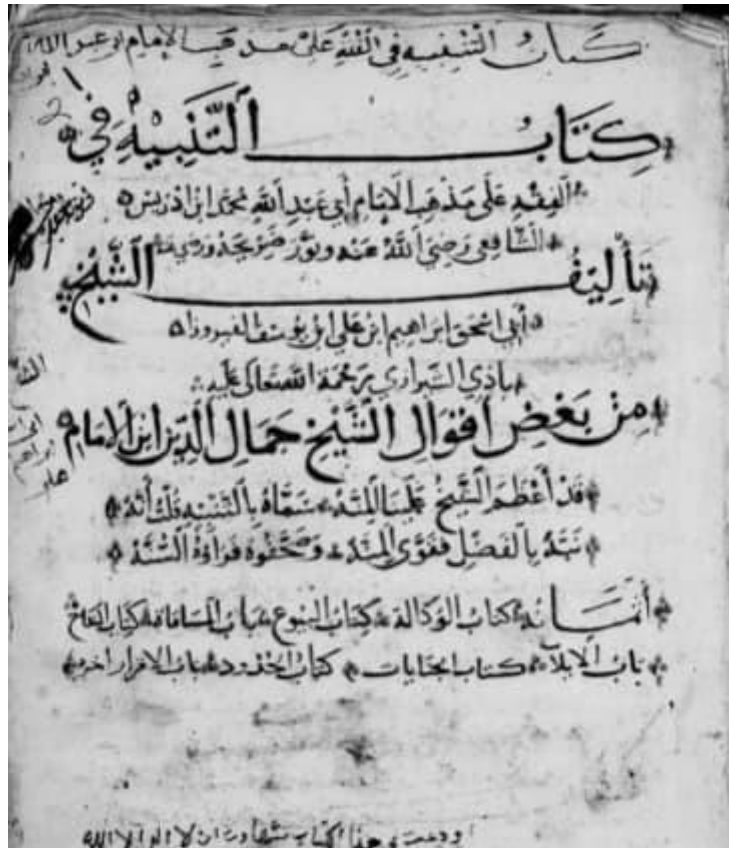 كتاب التنبيه في الفقه على مذهب الإمام ابو عبد الله
كِتَابُ التَّنْبِيْهِ فِي
الفِقْهِ عَلَى مَذْهَبِ الْإِمَامِ أَبِي عَبْدِ اللَّهِ مُحَمَّد ابْن اذريس
الشَّافِعِي رَضِيَ اللَّهُ عَنْهُ وَنَوَّرَ ضَرِيحَهُ
تَأْلِيْفُ الشَّيْخِ
أبي اسْحٰق ابراهيم ابن علي ابن يوسف الفيروزا
باذي الشيرازي رَحْمَةُ اللَّه تعالى عليه
مِنْ بَعْضِ اَقْوَالِ الشَّيْخِ جَمَالِ الدِّيْنِ ابن الامَام
قَدْ أَعْظَمَ الشَّيْخُ عَلَيْنَا المِنَّهْ سَمَّاهُ بِالتَّنْبِيْهِ قُلْتُ أَنَّهْ
نَبَّهَ بِالْفَضْلِ
أثمانه كتاب الوكالة كتاب البيوع باب المساقاة كتاب النكاح
باب الإيلاء كتاب الجنايات كتاب الحدود باب الاقرار اخره
اودعت في هذا الكتاب شهادة ان لا اله الا الله